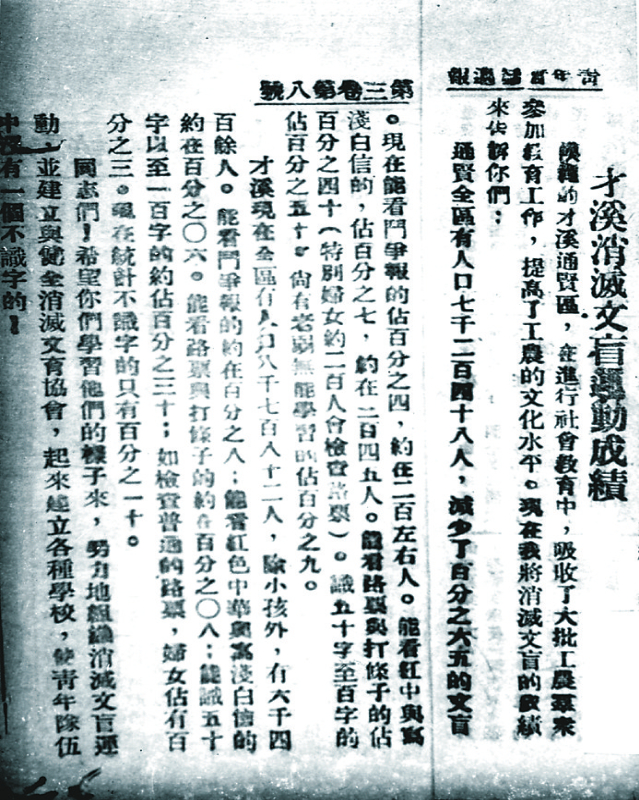 第三卷第八號
才溪消滅文盲運動成績
的才溪通賢區，在進行社會教育中，吸收了大批工農羣衆
參加教育工作，提高了工農的文化水平。現在我將消滅文盲的成績
來告訴你們：
通賢全區有人口七千二百四十八人，減少了百分之六五的文盲
。現在能看鬥爭報的佔百分之四，約在二百左右人。能看紅中與寫
淺白信的，佔百分之七，約在二百四五人。能看路票與打條子的佔
百分之四十（特別婦女約二百人會檢查路票）。識五十字至百字的
佔百分之五十。尚有老弱無能學習的佔百分之九。
才溪現在全區有人口八千七百八十二人，除小孩外，有六千四
百餘人。能看鬥爭報的約在百分之八；能看紅色中華與寫淺白信的
約在百分之〇六。能看路票與打條子的約在百分之〇八；能識五十
字以至一百字的約佔百分之三十；如檢查普通的路票，婦女佔有百
分之三。現在統計不識字的只有百分之一十。
同志們！希望你們學習他們的樣子來，努力地組織消滅文盲運
動，並建立與健全消滅文盲協會，起來建立各種學校，使青年隊伍
中沒有一個不識字的！